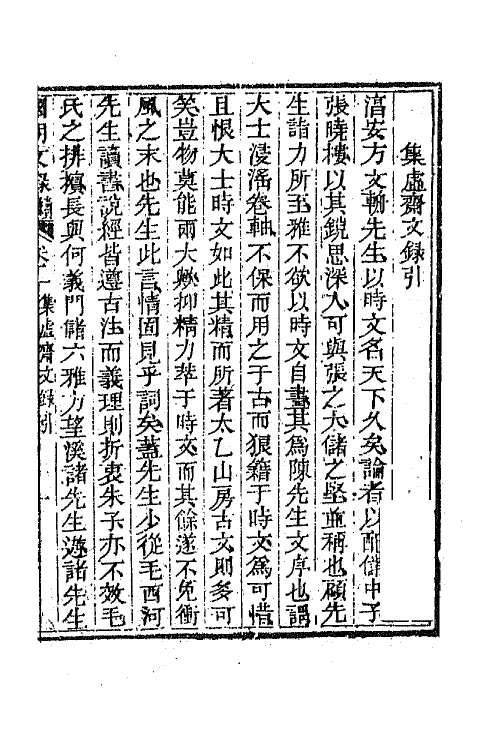 集虛齋文錄引
淳安方文輈先生以時文名天下久矣論者以配儲中子
張曉樓以其銳思深入可與張之大儲之堅並稱也顧先
生詣力所至雅不欲以時文自畫其爲陳先生文序也謂
大士浸淫卷軸不保而用之于古而狼籍于時文爲可惜
且恨大士時文如此其精而所著太乙山房古文則多可
笑豈物莫能兩大歟抑精力萃于時文而其餘遂不免衝
風之末也先生此言情固見乎詞矣蓋先生少從毛西河
先生讀書說經皆遵古法而義理則折衷朱子亦不效毛
氏之掊擊長與何義門儲六雅方望溪諸先生遊諸先生
國朝文錄續 卷一集虛齋文錄引 一